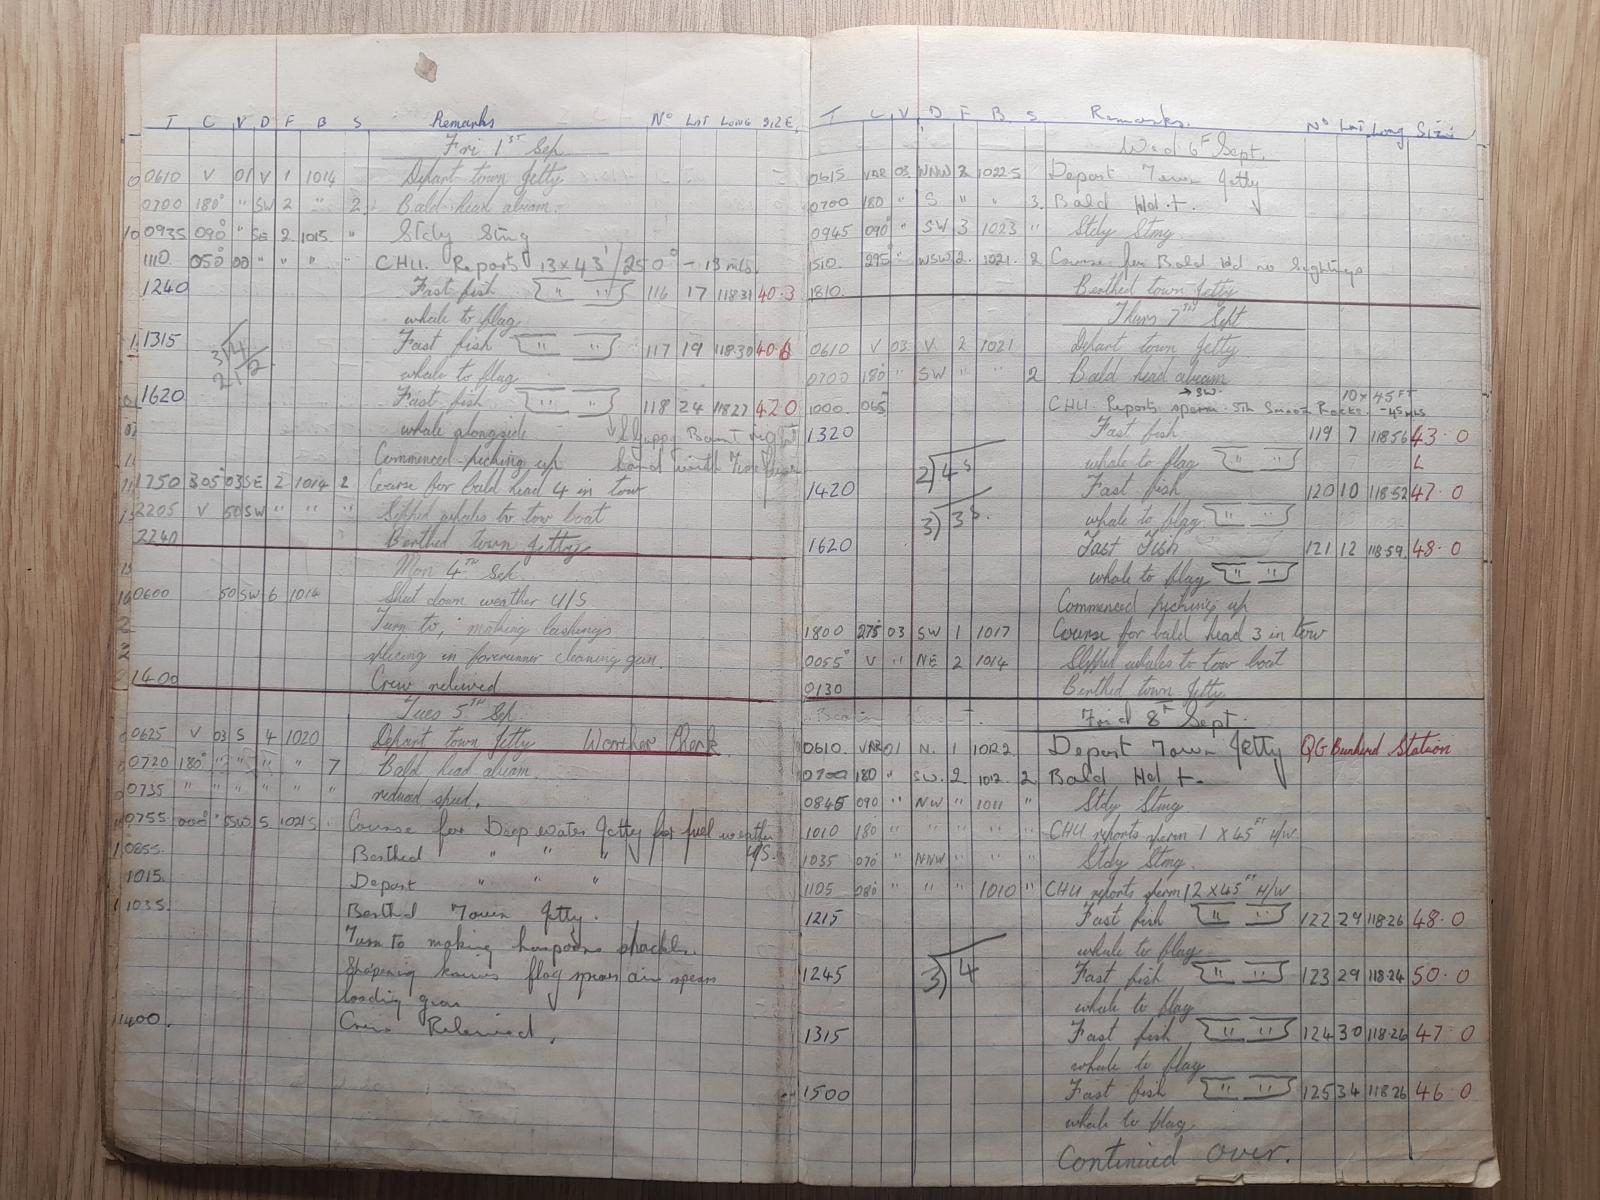 T C V D F B S Remarks No LAT LONG SIZE
Fri 1ST Sep
0610 V 01 V 1 1014 Depart town Jetty
0700 180° " SW 2 " 2 Bald head abeam.
0935 090° " SE 2 1015 " Stdy Stmg
1110 050° 00 " " " " CHU. Reports 13x43'/250° - 13 mls.
1240 Fast fish 116 17 118.31 40.3
whale to flag
1315 Fast fish 117 19 118.30 40.6
3)4/2
whale to flag
1620 Fast fish 118 24 118.27 42.0
whale alongside
Commenced picking up hand with
1750 305° 03 SE 2 1014 2 Course for bald head 4 in tow
2205 V 50 SW " " " Slipped whales to tow boat
2240 Berthed town Jetty
Mon 4TH Sep
0600 50 SW 6 1014 Shut down weather U/S.
Turn to, making lashings
splicing in forerunner cleaning gun.
1400 Crew relieved
Tues 5TH Sep.
0625 V 03 S 4 1020 Depart town Jetty Weather
0720 180° " " " " 7 Bald head abeam.
0735 " " " " " " reduced speed.
0755 000° " SSW 5 1021.5 Course for Deep water Jetty for fuel weather
U/S.
0855. Berthed " " "
1015. Depart " " "
1035. Berthed Town Jetty.
Turn to making harpoons shackles
Sharpening knives flag spears air spears
loading gun
1400. Crew Relieved.
T C V D F B. S. Remarks. No Lat Long Size
Wed 6T Sept.
0615 VAR 03 NNW 2 1022.5 Depart Town Jetty
0700 180 " S " " 3. Bald Hd +.
0945 090° " SW 3 1023 " Stdy Stmg
1510. 295° " WSW 2. 1021. 2 Course for Bald Hd no sightings
1810. Berthed town Jetty
Thurs 7TH Sept
0610 V 03 V 2 1021 Depart town Jetty
0700 180° " SW " " 2 Bald head abeam
→SW. 10x45FT
1000. 065° CHU. Reports sperm. 5th Smooth Rocks. -45mls
1320 Fast fish 119 7 118.56 43.0
2)45 whale to flag L
1420 Fast fish 120 10 118.52 47.0
3)35. whale to flag
1620 Fast Fish 121 12 118.59. 48.0
whale to flag
Commenced picking up
1800 275° 03 SW 1 1017 Course for bald head 3 in tow
0055 V " NE 2 1014 Slipped whales to tow boat
0130 Berthed town Jetty
Frid 8T Sept.
0610. VAR 01 N. 1 1012.2 Depart Town Jetty QG Bunkerd Station
0700 180 " SW. 2 1012. 2 Bald Hd +.
0845 090 " NW " 1011 " Stdy Stmg
1010 180 " " " " " CHU reports sperm 1 X 45FT H/W.
1035 070° " NNW " " " Stdy Stmg.
1105 080 " " " 1010 " CHU reports sperm 12 X 45FT H/W
1215 Fast fish 122 29 118.26 48.0
whale to flag
1245 3)4 Fast fish 123 29 118.24 50.0
whale to flag
1315 Fast fish 124 30 118.26 47.0
whale to flag
1500 Fast fish 125 34 118.26 46.0
whale to flag
Continued over.